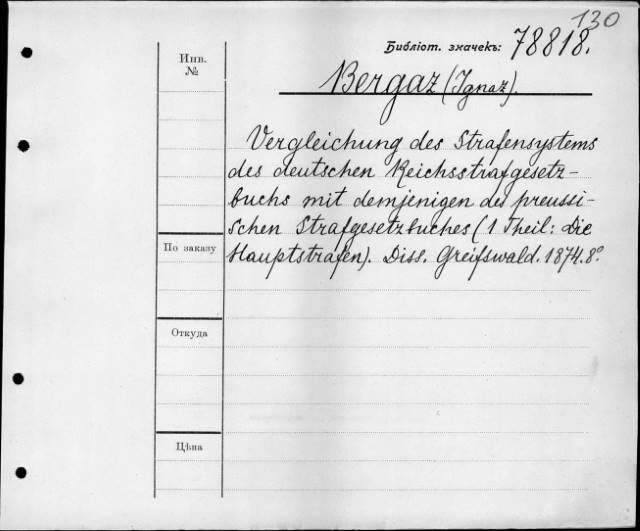 130
Библіот. значекъ: 78818.
Инв.
№
Bergaz (Ignaz).
Vergleichung des Strafensystems
des deutschen Reichsstrafgesetz-
buchs mit demjenigen des preussi-
schen Strafgesetzbuches (1 Theil: Die
Hauptstrafen). Diss. Greifswald. 1874. 8°
По заказу
Откуда
Цѣна